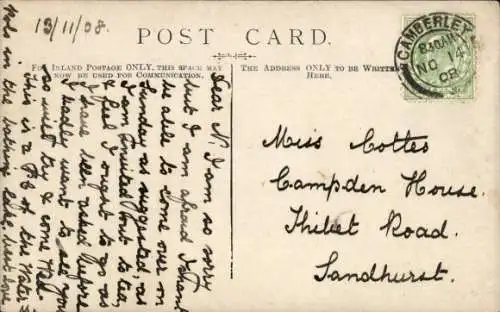 13/11/08.
POST CARD.
FOR INLAND POSTAGE ONLY, THIS SPACE MAY
NOW BE USED FOR COMMUNICATION.
THE ADDRESS ONLY TO BE WRITTEN
HERE.
CAMBERLEY
NO 14
08
Dear N. I am so sorry
but I am afraid I shant
be able to come over on
Sunday as suggested, as
I am invited out to tea,
& I feel I ought to go as
I have been asked before
I badly want to see you
so must try & come Wed.
This is a P.C. of the Water
in the bathing lake, best love
Miss Cottes
Campden House.
Thibet Road.
Sandhurst.